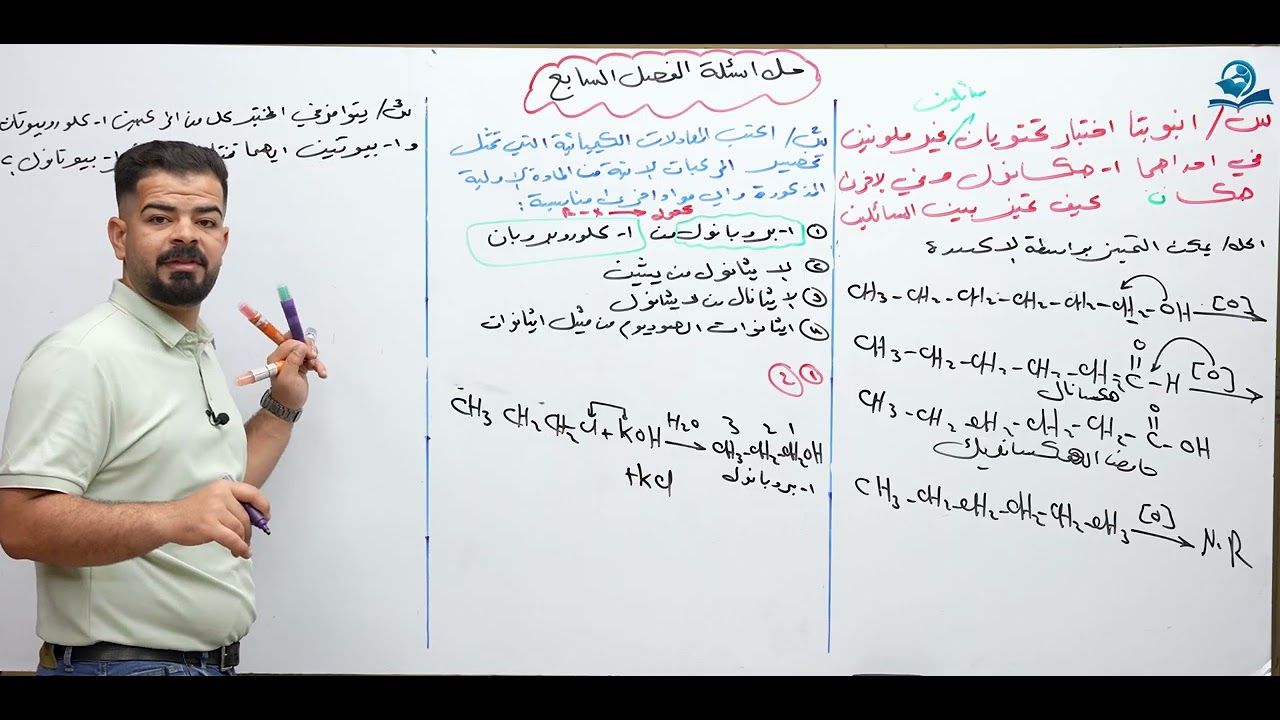 حل اسئلة الفصل السابع
سائلين
س/ انبوبتا اختبار تحتويان غير ملونين
في احداهما 1- هكسانول وفي الاخرى
هكسان كيف تميز بين السائلين
الحل/ يمكن التمييز بواسطة الاكسدة
CH3-CH2-CH2-CH2-CH2-CH2-OH [O]
CH3-CH2-CH2-CH2-CH2-C-H [O]
O
هكسانال
CH3-CH2-CH2-CH2-CH2-C-OH
O
حامض الهكسانويك
CH3-CH2-CH2-CH2-CH2-CH3 [O] N.R
س/ اكتب المعادلات الكيميائية التي تمثل
تحضير المركبات الاتية من المادة الاولية
المذكورة واي مواد اخرى مناسبة:
R-X → كحول
① 1- بروبانول من 1- كلوروبروبان
② الايثانول من
③ الايثانال من الايثانول
④ ايثانوات الصوديوم من مثيل ايثانوات
① ②
CH3 CH2 CH2 Cl + KOH H2O CH3-CH2-CH2OH
3 2 1
+ KCl
1- بروبانول
س/ يتوافر في المختبر كل من المركبين 1- كلوروبيوتان
و 1- بيوتين ايهما 1- بيوتانول ؟